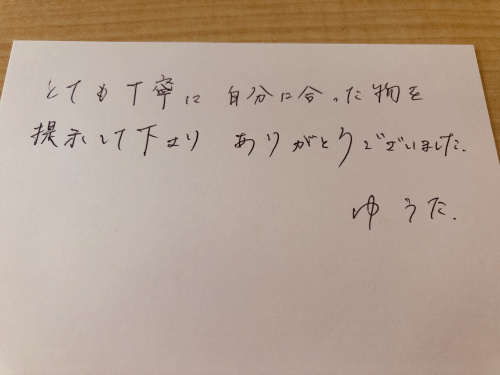 とても丁寧に 自分に合った物を
提示して下さり ありがとうございました.
ゆうた.